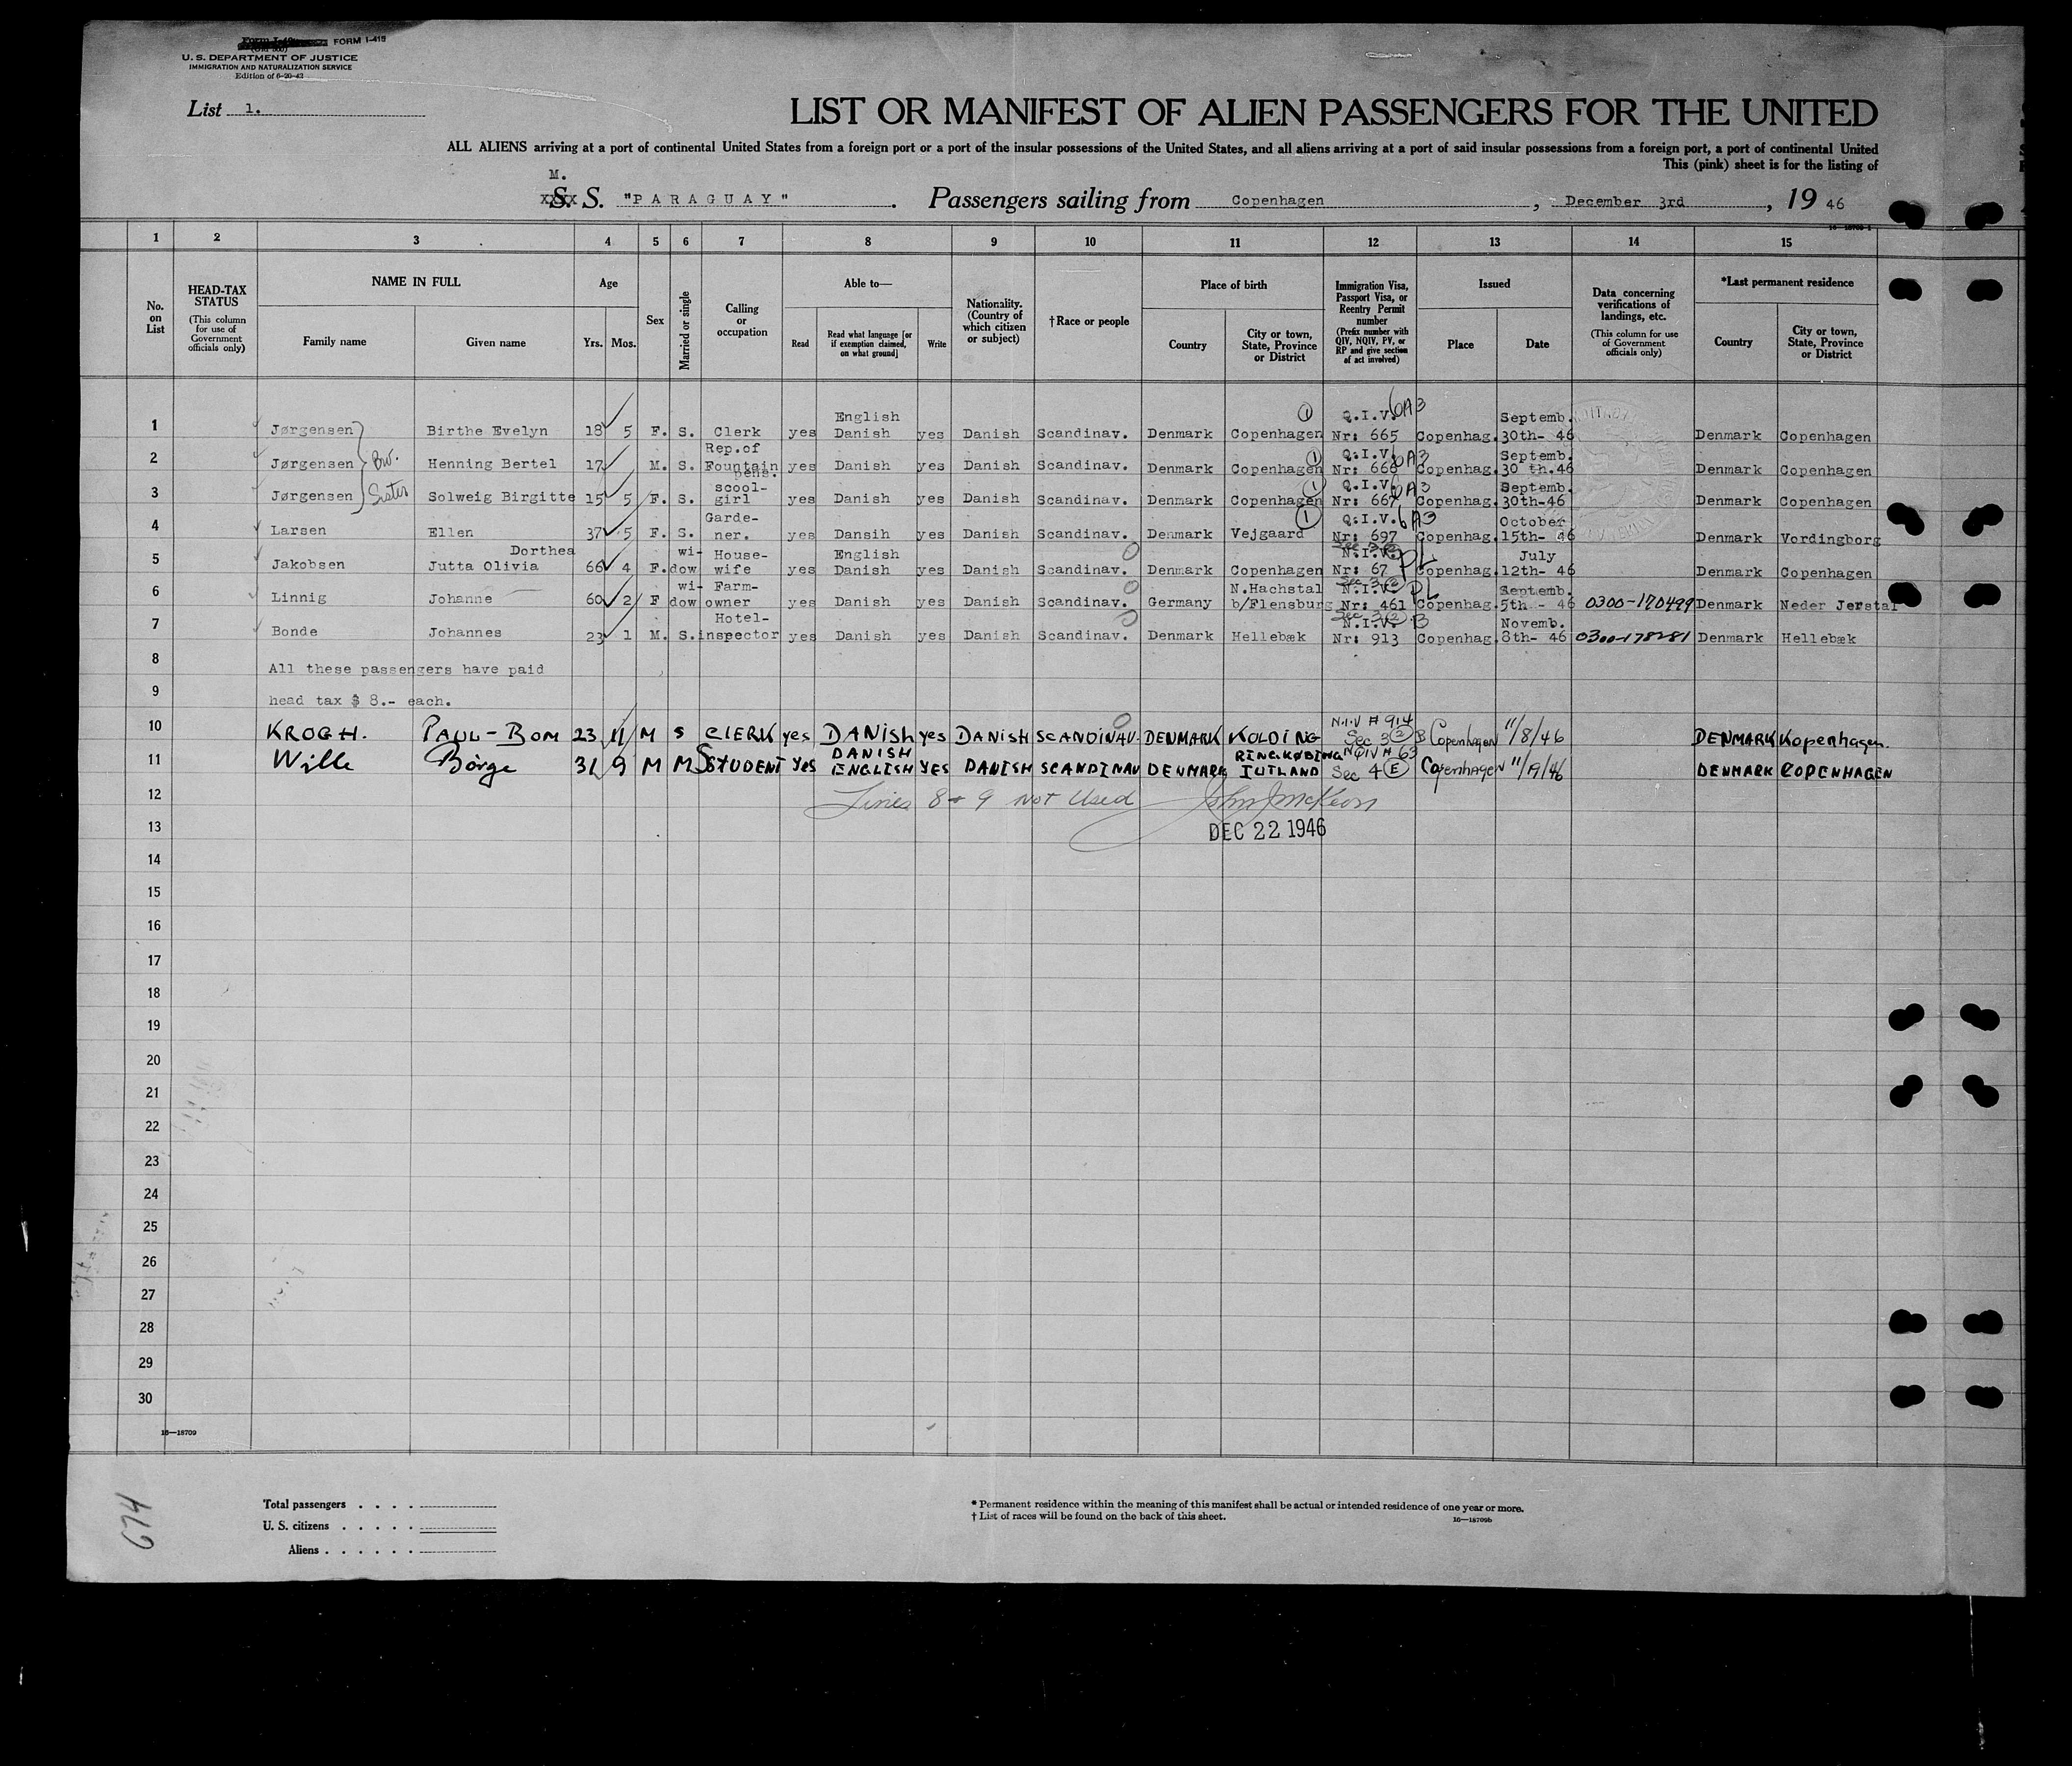 FORM I-415
U. S. DEPARTMENT OF JUSTICE
IMMIGRATION AND NATURALIZATION SERVICE
Edition of 6-20-42
List 1.
LIST OR MANIFEST OF ALIEN PASSENGERS FOR THE UNITED
ALL ALIENS arriving at a port of continental United States from a foreign port or a port of the insular possessions of the United States, and all aliens arriving at a port of said insular possessions from a foreign port, a port of continental United
This (pink) sheet is for the listing of
M.
S. S. "PARAGUAY" . Passengers sailing from Copenhagen , December 3rd , 19 46
1 2 3 4 5 6 7 8 9 10 11 12 13 14 15
No. on List
HEAD-TAX STATUS (This column for use of Government officials only)
NAME IN FULL Family name Given name
Age Yrs. Mos.
Sex
Married or single
Calling or occupation
Able to— Read Read what language [or if exemption claimed, on what ground] Write
Nationality. (Country of which citizen or subject)
†Race or people
Place of birth Country City or town, State, Province or District
Immigration Visa, Passport Visa, or Reentry Permit number (Prefix number with QIV, NQIV, PV, or RP and give section of act involved)
Issued Place Date
Data concerning verifications of landings, etc. (This column for use of Government officials only)
*Last permanent residence Country City or town, State, Province or District
1 Jørgensen Birthe Evelyn 18 5 F. S. Clerk yes English Danish yes Danish Scandinav. Denmark Copenhagen Q.I.V. 6A3 Nr: 665 Copenhag. Septemb. 30th- 46 Denmark Copenhagen
2 Jørgensen Bro. Henning Bertel 17 M. S. Rep.of Fountain pens. yes Danish yes Danish Scandinav. Denmark Copenhagen Q.I.V. 6A3 Nr: 666 Copenhag. Septemb. 30 th.46 Denmark Copenhagen
3 Jørgensen Sister Solweig Birgitte 15 5 F. S. scool-girl yes Danish yes Danish Scandinav. Denmark Copenhagen Q.I.V. 6A3 Nr: 667 Copenhag. Septemb. 30th-46 Denmark Copenhagen
4 Larsen Ellen 37 5 F. S. Garde-ner. yes Dansih yes Danish Scandinav. Denmark Vejgaard Q.I.V. 6A3 Nr: 697 Copenhag. October 15th- 46 Denmark Vordingborg
5 Jakobsen Dorthea Jutta Olivia 66 4 F. wi-dow House-wife yes English Danish yes Danish Scandinav. Denmark Copenhagen N.I.V. PL Nr: 67 Copenhag. July 12th- 46 Denmark Copenhagen
6 Linnig Johanne 60 2 F wi-dow Farm-owner yes Danish yes Danish Scandinav. Germany N.Hachstal b/Flensburg Sec 3(2) N.I.V. PL Nr: 461 Copenhag. Septemb. 5th - 46 0300-170499 Denmark Neder Jerstal
7 Bonde Johannes 23 1 M. S. Hotel-inspector yes Danish yes Danish Scandinav. Denmark Hellebæk Sec 3(2) N.I.V. B Nr: 913 Copenhag. Novemb. 8th- 46 0300-178281 Denmark Hellebæk
8 All these passengers have paid
9 head tax $ 8.- each.
10 KROGH. PAUL-BOM 23 11 M S CLERK yes DANISH yes DANISH SCANDINAV. DENMARK KOLDING N.I.V # 914 Sec 3(2) B Copenhagen 11/8/46 DENMARK Kopenhagen.
11 Wille Börge 31 9 M M STUDENT yes DANISH ENGLISH YES DANISH SCANDINAV DENMARK RINGKØBING JUTLAND NQIV # 63 Sec 4(E) Copenhagen 11/19/46 DENMARK COPENHAGEN
12 Lines 8 & 9 Not Used John J McKeon
13 DEC 22 1946
14
15
16
17
18
19
20
21
22
23
24
25
26
27
28
29
30
16—18709
674
Total passengers . . . .
U. S. citizens . . . . .
Aliens . . . . . .
* Permanent residence within the meaning of this manifest shall be actual or intended residence of one year or more.
† List of races will be found on the back of this sheet.
16—18709b